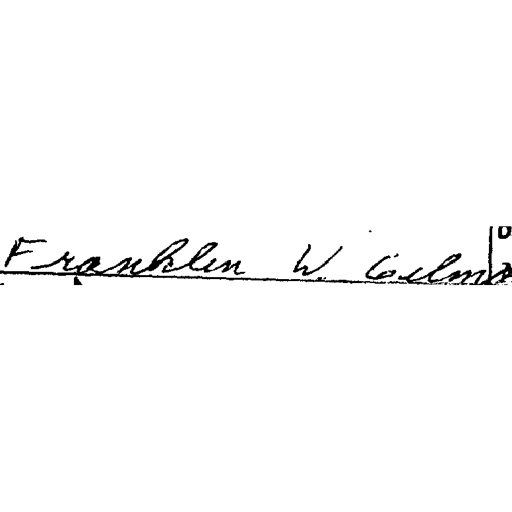 Franklin W. Gilma